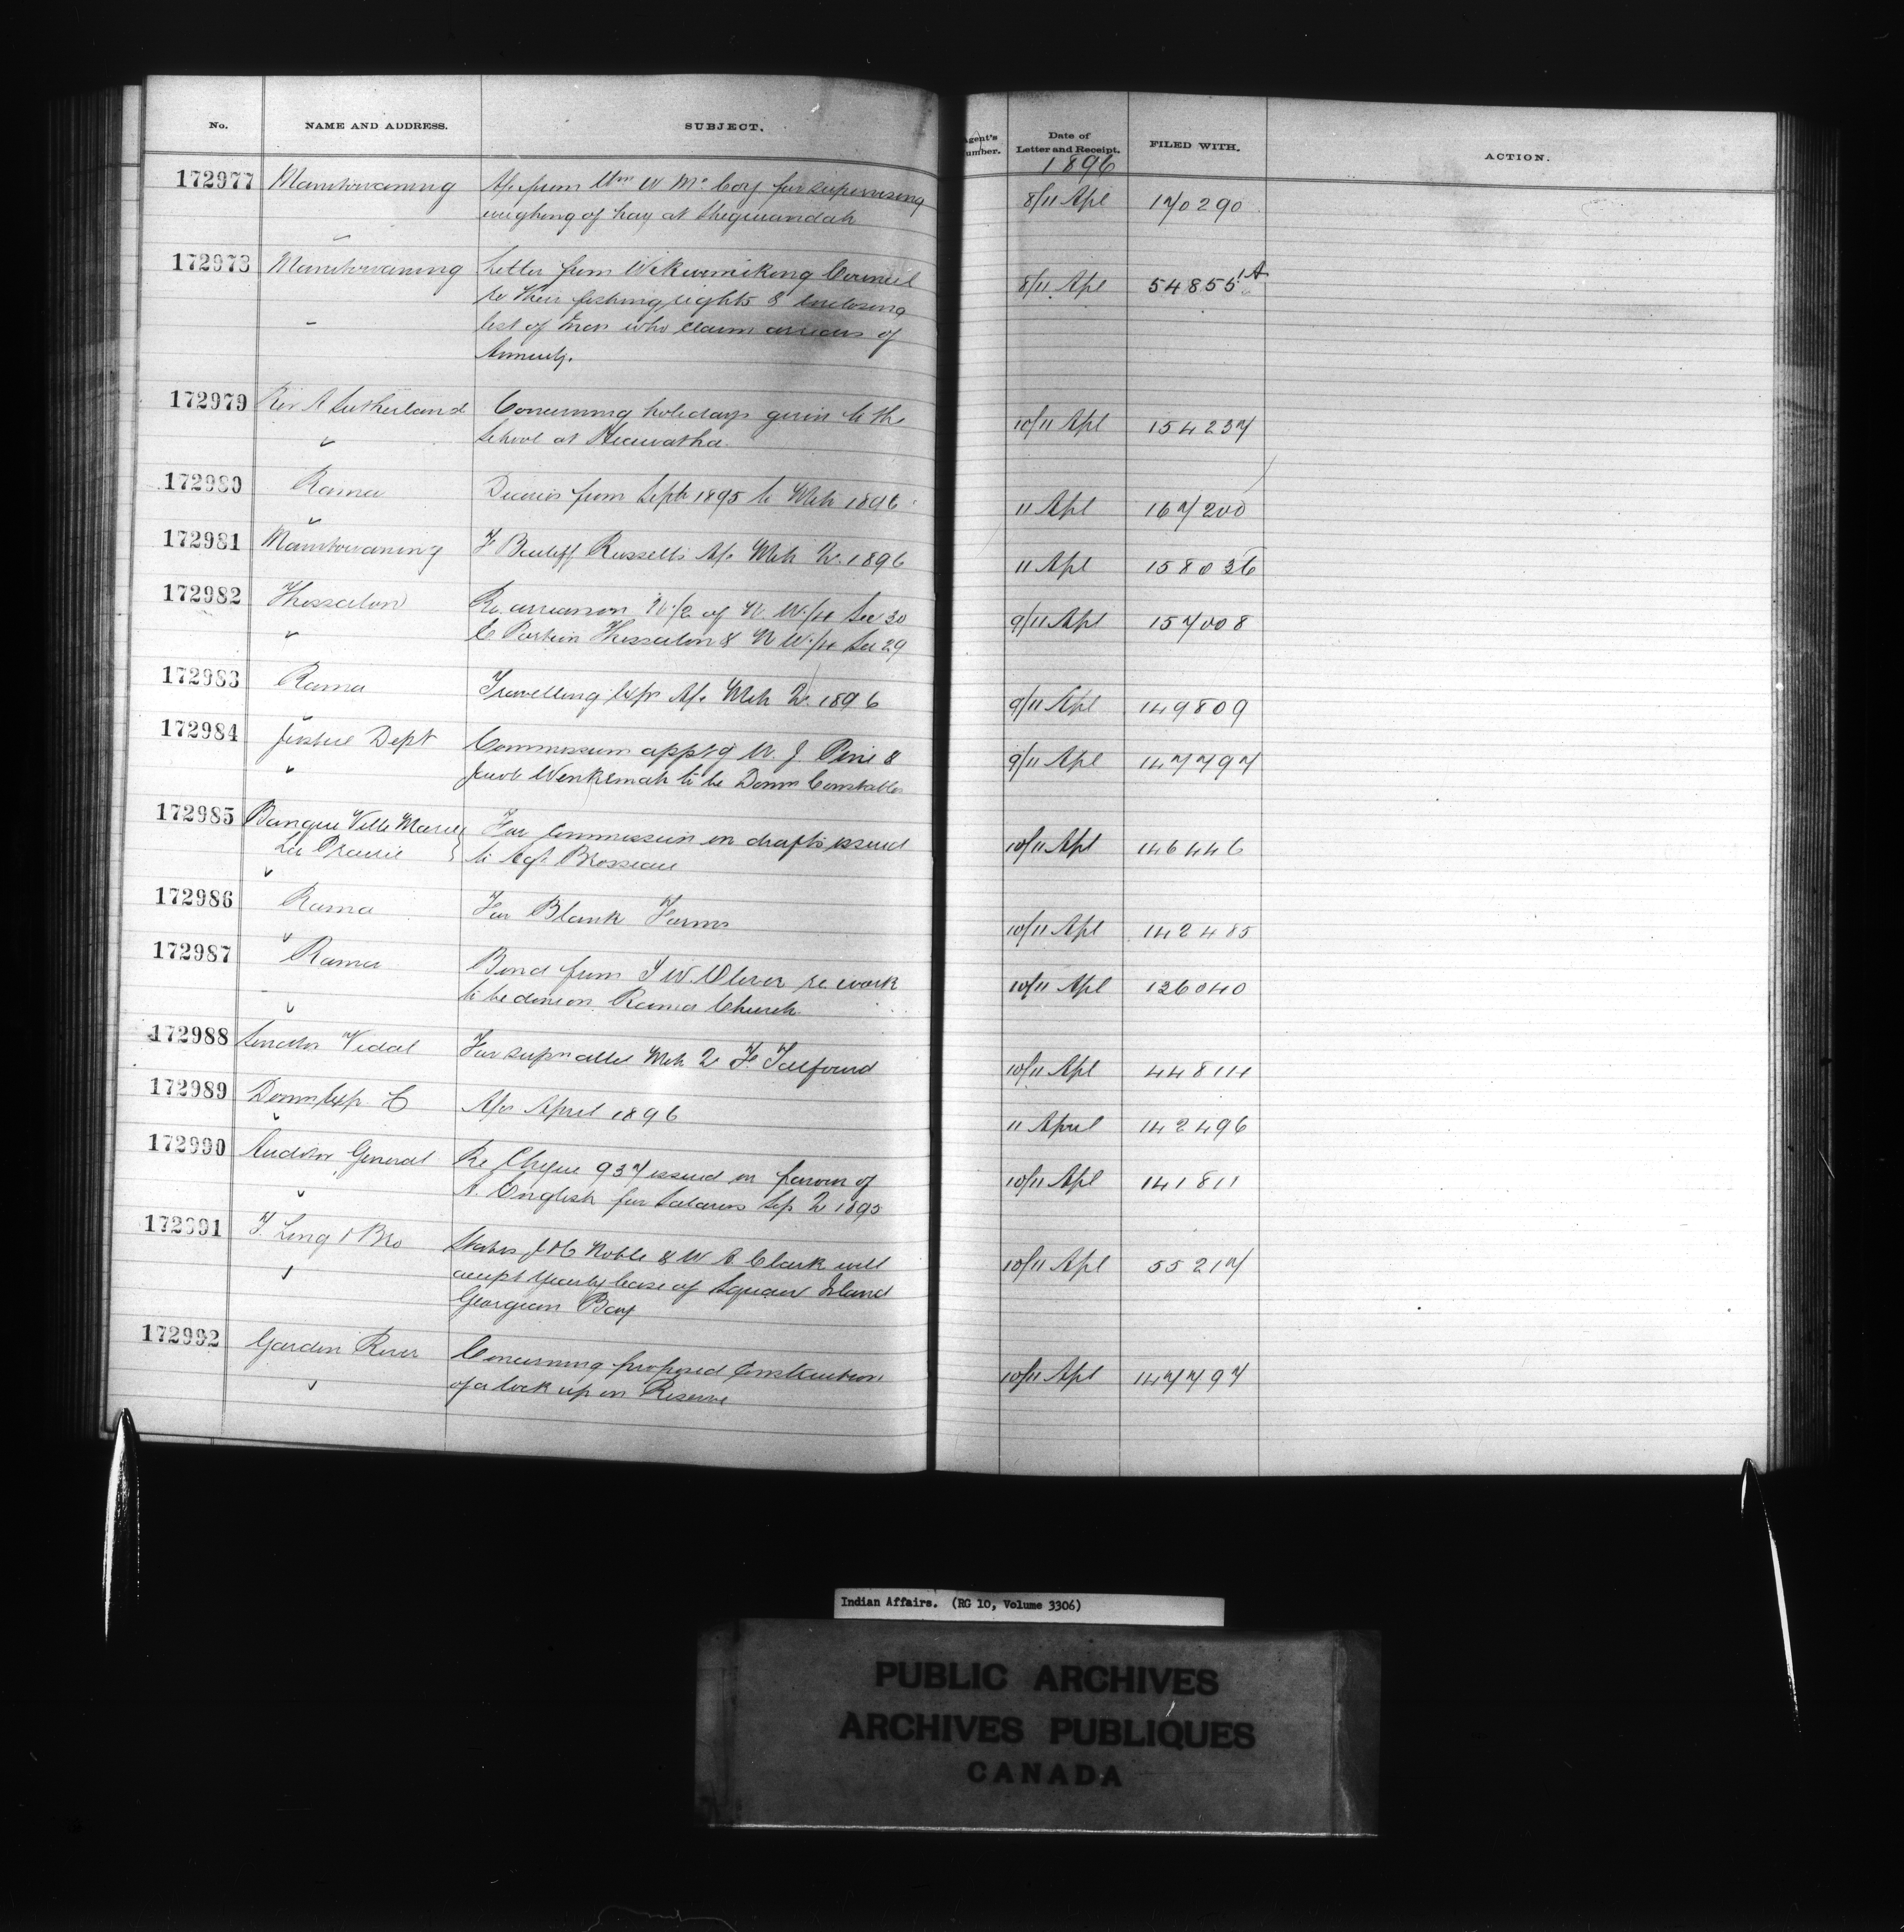 No. NAME AND ADDRESS. SUBJECT. Agent's Number. Date of Letter and Receipt. FILED WITH. ACTION.
1896
172977 Manitowaning A/c from Wm W. McCoy for supervising 8/11 Apl 170290
weighing of hay at Sheguiandah
172978 Manitowaning Letter from Wikwemikong Council 8/11 Apl 54855 1A
re their fishing rights & enclosing
list of men who claim arrears of
Annuity.
172979 Rev A Sutherland Concerning holidays given to the 10/11 Apl 154237
School at Hiawatha
172980 Rama Diaries from Sept 1895 to Mch 1896 11 Apl 167200
172981 Manitowaning F Bailiff Russells A/c Mch Qr. 1896 11 Apl 158036
172982 Thessalon Re arrears on N 1/2 of N. W. 1/4 Sec 30 9/11 Apl 157008
& Portion Thessalon & N W 1/4 Sec 29
172983 Rama Travelling Exps A/c Mch Qr. 1896 9/11 Apl 149809
172984 Justice Dept Commission apptg W. J. Pine & 9/11 Apl 147797
to be Domn Constables
172985 Banque Ville Marie For Commission on drafts issued 10/11 Apl 146446
La Prairie to Agt Brosseau
172986 Rama For Blank Forms 10/11 Apl 142485
172987 Rama Bond from J W. Oliver re work 10/11 Apl 126040
to be done on Rama Church
172988 Senator Vidal For supn allce Mch Qr F. Talfourd 10/11 Apl 44814
172989 Domn Exp. C A/cs April 1896 11 April 142496
172990 Auditor General Re Cheque 937 issued in favour of 10/11 Apl 141811
A. English for Salaries Sep Qr 1895
172991 T. Long & Bro States J & C Noble & W A Clark will 10/11 Apl 55217
accept yearly lease of Squaw Island
Georgian Bay
172992 Garden River Concerning proposed Construction 10/11 Apl 147797
of a lock up on Reserve
Indian Affairs. (RG 10, Volume 3306)
PUBLIC ARCHIVES
ARCHIVES PUBLIQUES
CANADA